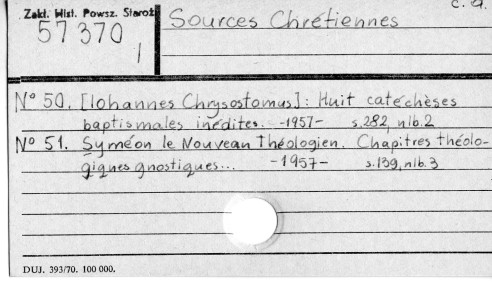 c. d.
Zakł. Hist. Powsz. Staroż
57370
1
Sources Chrétiennes
Nº 50. [Iohannes Chrysostomus]: Huit catéchèses
baptismales inédites. -1957- s.282, nlb.2
Nº 51. Syméon le Nouveau Théologien. Chapitres théolo-
giques gnostiques... -1957- s.139, nlb.3
DUJ. 393/70. 100 000.